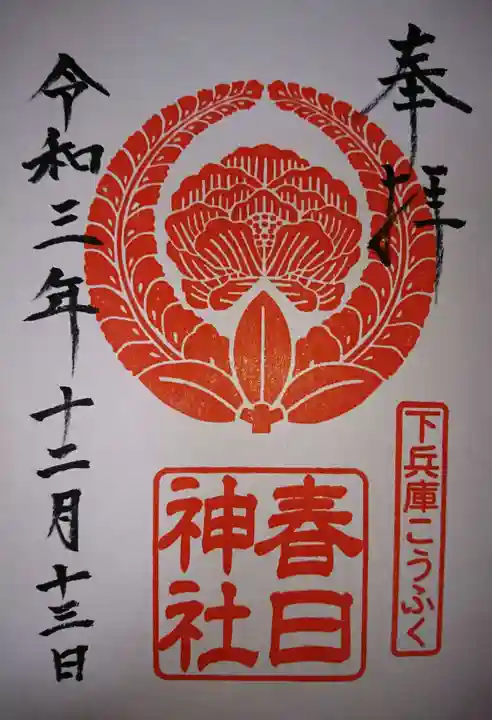 奉拝
下兵庫こうふく
春日
神社
令和三年十二月十三日